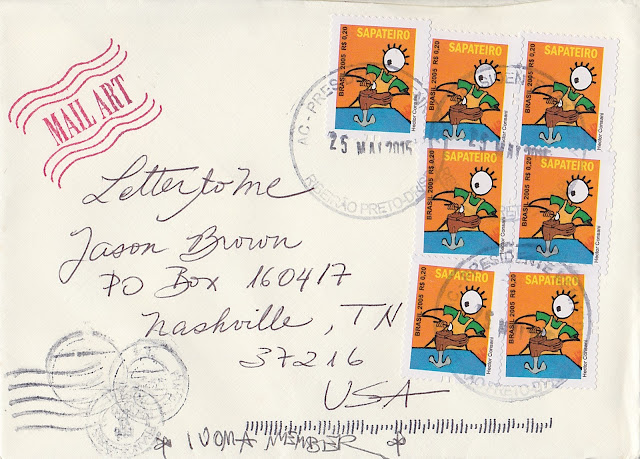 MAIL ART
SAPATEIRO
BRASIL 2005 R$ 0,20
Hector Consani
SAPATEIRO
BRASIL 2005 R$ 0,20
Hector Consani
SAPATEIRO
BRASIL 2005 R$ 0,20
Hector Consani
SAPATEIRO
BRASIL 2005 R$ 0,20
Hector Consani
SAPATEIRO
BRASIL 2005 R$ 0,20
Hector Consani
SAPATEIRO
BRASIL 2005 R$ 0,20
Hector Consani
SAPATEIRO
BRASIL 2005 R$ 0,20
Hector Consani
25 MAI 2015
RIBEIRÃO PRETO
Letter to me
Jason Brown
PO Box 160417
Nashville, TN
37216
USA
IUOMA MEMBER